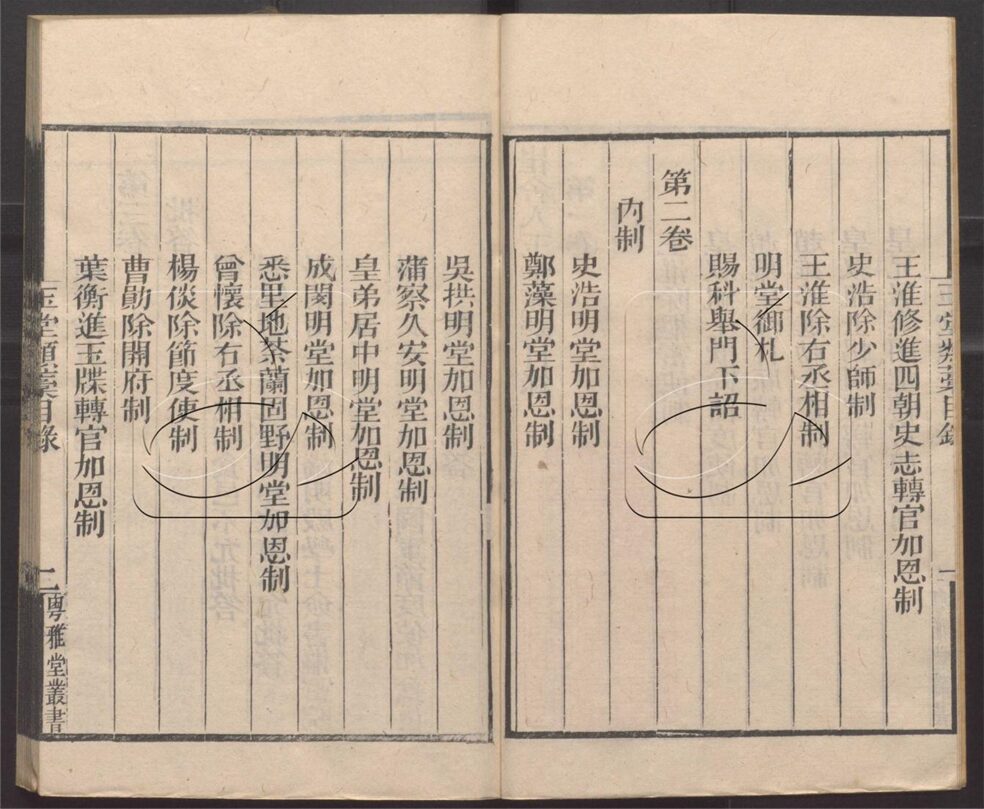 玉堂類稾目錄
王淮修進四朝史志轉官加恩制
史浩除少師制
王淮除右丞相制
明堂御札
賜科舉門下詔
第二卷
內制
史浩明堂加恩制
鄭藻明堂加恩制
吳拱明堂加恩制
蒲察久安明堂加恩制
皇弟居中明堂加恩制
成閔明堂加恩制
悉里地茶蘭固野明堂加恩制
曾懷除右丞相制
楊倓除節度使制
曹勛除開府制
葉衡進玉牒轉官加恩制
玉堂類稾目錄
二
粵雅堂叢書